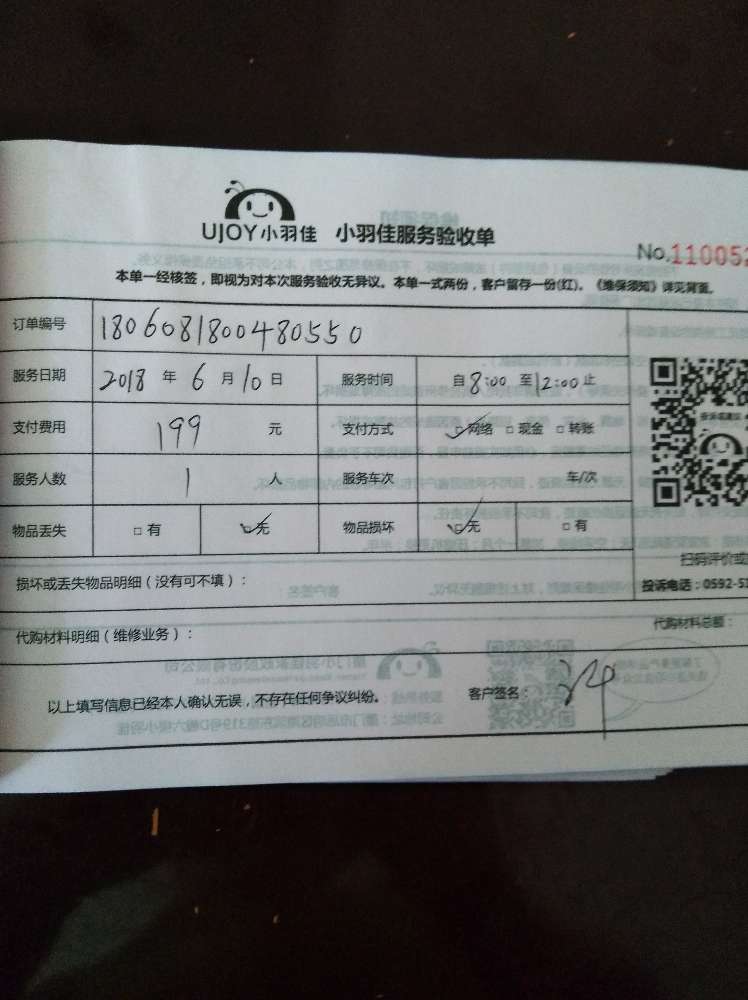 UJOY小羽佳 小羽佳服务验收单
No.110052
本单一经核签，即视为对本次服务验收无异议。本单一式两份，客户留存一份(红)。《维保须知》详见背面。
订单编号 180608180048055​0
服务日期 2018 年 6 月 10 日 服务时间 自 8:00 至 12:00 止
支付费用 199 元 支付方式 ☑网络 □现金 □转账
服务人数 1 人 服务车次 车/次
物品丢失 □有 ☑无 物品损坏 ☑无 □有
扫码评价或
损坏或丢失物品明细（没有可不填）：
投诉电话：0592-51
代购材料明细（维修业务）： 代购材料总额：
以上填写信息已经本人确认无误，不存在任何争议纠纷。 客户签名：